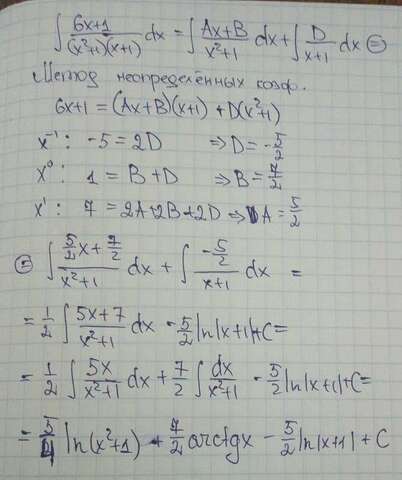 ∫ (6x+1)/((x²+1)(x+1)) dx = ∫ (Ax+B)/(x²+1) dx + ∫ D/(x+1) dx ⊜
Метод неопределённых коэф.
6x+1 = (Ax+B)(x+1) + D(x²+1)
x⁻¹: -5 = 2D ⇒ D = -5/2
x⁰: 1 = B+D ⇒ B = 7/2
x¹: 7 = 2A+2B+2D ⇒ A = 5/2
⊜ ∫ (5/2 x + 7/2)/(x²+1) dx + ∫ (-5/2)/(x+1) dx =
= 1/2 ∫ (5x+7)/(x²+1) dx - 5/2 ln|x+1| + C =
= 1/2 ∫ 5x/(x²+1) dx + 7/2 ∫ dx/(x²+1) - 5/2 ln|x+1| + C =
= 5/4 ln(x²+1) + 7/2 arctgx - 5/2 ln|x+1| + C